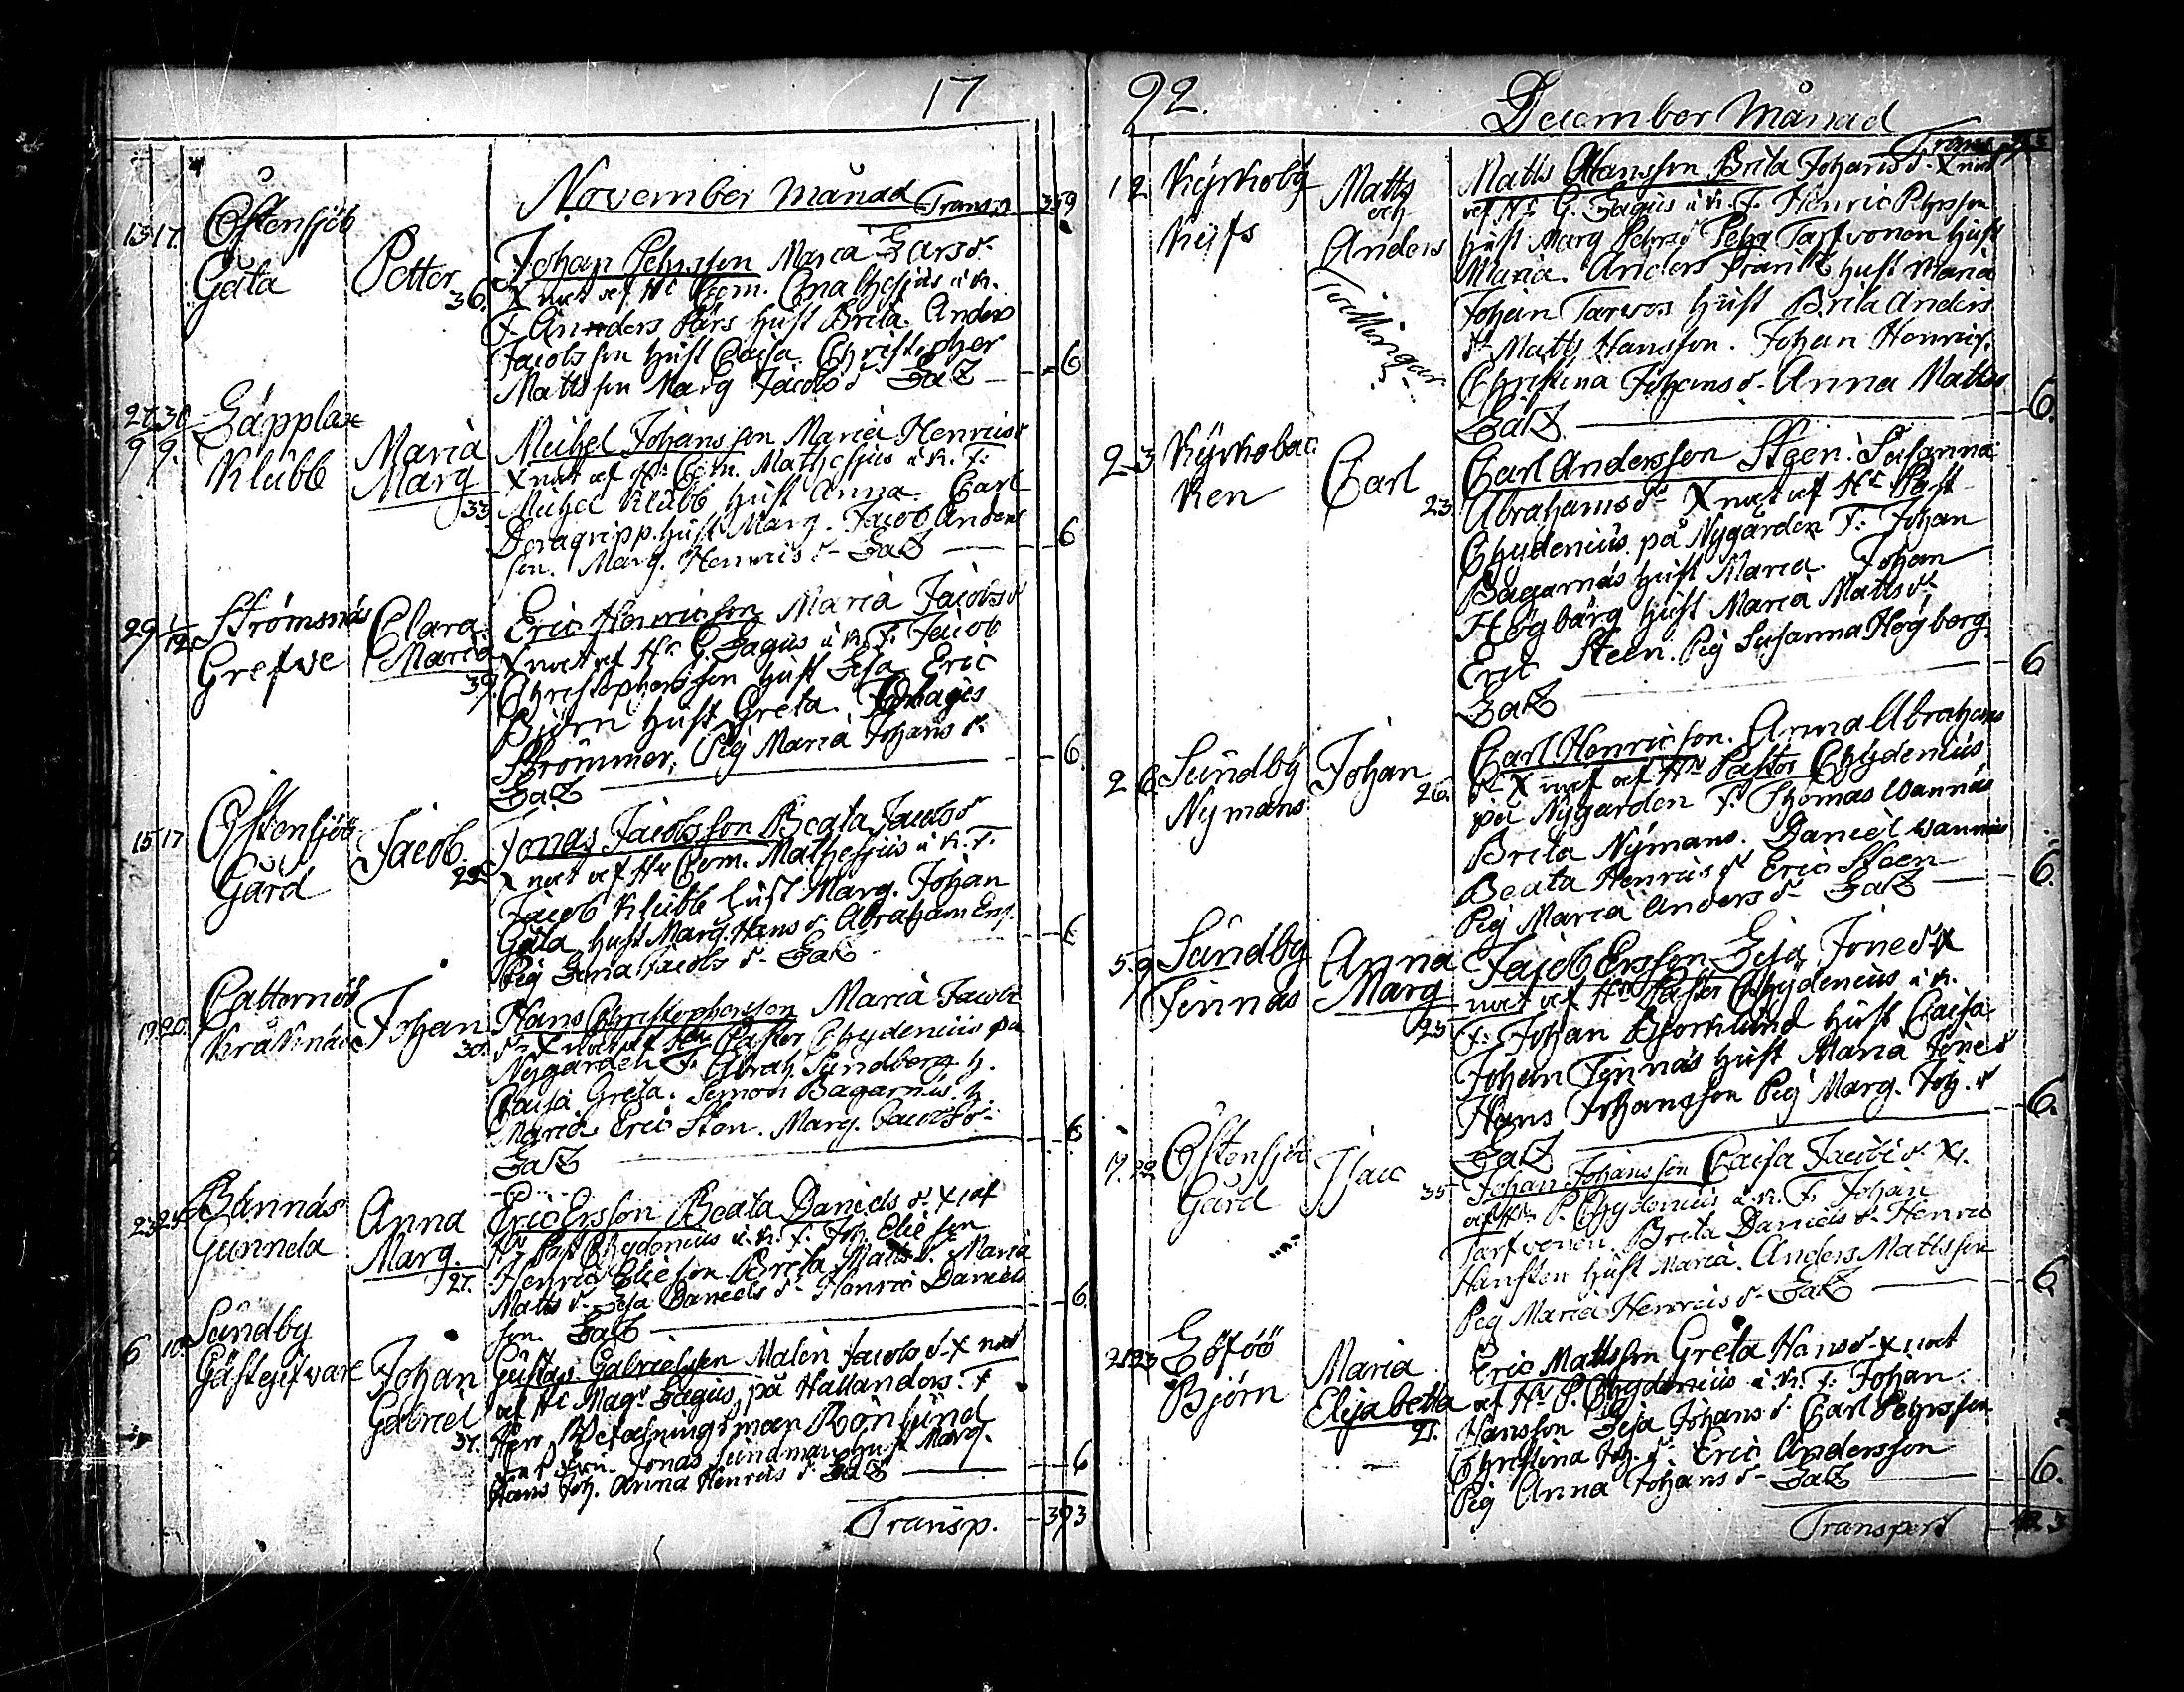 17
November Månad Transp 359
13 17. Östensjöb
Gäta
Petter
36.
Johan Pehrsson Maria Larsd:r
X nat af H:r Com. Mathesius i k.
F. Anders Lars hust Brita. Anders
Jacobsson hust Caisa Christopher
Mattsson Marg Jacobsd:r LatZ 6
27 30 Läpplax
9 9. Klubb
Maria
Marg
33
Michel Johansson Maria Henricsd
X nat af H:r Com. Mathesius i k. F:
Michel Klubb hust Anna. Carl
Doragripp hust Marg. Jacob Anders
son. Marg. Henricsd:r LatZ 6
29 1/12 Strömsnäs
Grefve
Clara
Maria
39.
Eric Henricson Maria Jacobsd
X nat af H:r G. Lagus i k. F. Jacob
Christophersson hust Lisa Eric
Björn hust Greta.
Strömmer, Pig Maria Johansd:r
LatZ 6
15 17 Östensjö
Gård
Jacob.
29
Jonas Jacobsson Beata Jacobsd
X nat af H:r Com. Mathesius i k. F.
Jacob Klubb hust Marg. Johan
Gäta hust Marg. Hansd. Abraham Ers.
Pig Lena Jacobsd:r LatZ 6
19 20. Catternö
Kråknäs
Johan
30.
Hans Christophersson Maria Jacobs
d:r X nat af H:r Pastor Chydenius på
Nygården F. Abrah. Sundberg h.
Caisa Greta. Simon Bagarnäs. h.
Maria Eric Sten. Marg. Jacobsd:r
LatZ 6
23 24. Bännäs
Gunnela
Anna
Marg.
27.
Eric Ersson Beata Danielsd. X af
H:r Past Chydenius i k. F. Joh. Elieson
Henric Elieson Brita Mattsd. Maria
Mattsd. Lisa Danielsd:r Henric Daniels
son. LatZ 6
6 10. Sundby
Gästgifvare
Johan
Gabriel
37.
Gustaf Gabrielsson Malin Jacobsd. X nat
af H:r Mag:r Lagus på Hallanders. F
Herr Befalningsman Rönlund
Jonas Sundman hust Marg.
Hans Joh. Anna Henricsd:r LatZ 6
Transp. 393
92.
December Månad
Trans
1 2 Kyrkoby
Keifs
Matts
och
Anders
Tvillingar
Matts Hansson Brita Johansd. X nat
af H:r G. Lagus i k. F. Henric Pehrsson
hust Marg Pehrsd Pehr Tarfvonen hust
Maria. Anders Frantz hust Maria
Johan Tarvon hust Brita Anders
d:r Matts Hansson. Johan Henrics.
Christina Johansd. Anna Matts
LatZ 6.
2 3 Kyrkobac
ken
Carl
23.
Carl Andersson Steen. Susanna
Abrahamsd:r X nat af H:r Past
Chydenius på Nygården F: Johan
Bagarnäs hust Maria. Johan
Högbärg hust Maria Mattsd:r
Eric Steen. Pig Susanna Högberg
LatZ 6
2 6 Sundby
Nymans
Johan
26.
Carl Henricson. Anna Abrahams
d:r X nat af H:r Pastor Chydenius
på Nygården F: Thomas Wannäs
Brita Nymans. Daniel Wannäs
Beata Henricsd:r Eric Steen
Pig Maria Andersd:r LatZ 6.
5. 9 Sundby
Finnäs
Anna
Marg
25
Jacob Ersson Lisa Joned:r X
nat af H:r Pastor Chydenius i k.
F: Johan Björklund hust Caisa
Johan Finnäs hust Maria Joned
Hans Johansson Pig Marg. Joh. d
LatZ 6.
17. 22 Östensjö
Gård
Isac
35
Johan Johansson Caisa Jacobsd. X
af H:r P. Chydenius i k. F. Johan
Tarfvonen. Brita Danielsd. Henric
Hansson hust Maria. Anders Mattsson
Pig Maria Henricsd. LatZ 6
21 23 Löföö
Björn
Maria
Elisabetha
21.
Eric Mattsson Greta Hansd. X nat
af H:r P. Chydenius i k. F. Johan
Hansson Lisa Johansd. Carl Pehrsson
Christina Joh. d:r Eric Andersson
Pig Anna Johansd. LatZ 6.
Transport 423